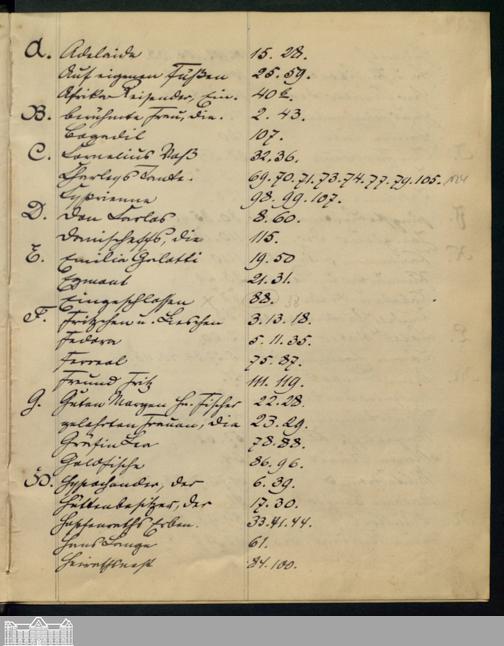 A. Adelaide 15. 28.
Auf eigenen Füßen 25. 59.
Afrika Reisender, Ein. 40 b.
B. berühmte Frau, die. 2. 43.
Bagadil 107.
C. Cornelius Voß 32. 36.
Charleys Tante. 69. 70. 71. 73. 74. 77. 79. 105.
Cyprienne 98. 99. 107.
D. Don Carlos 8. 60.
Danischeffs, die 115.
E. Emilia Galotti 19. 50
Egmont 21. 31.
Eingeschlossen 88.
F. Fritzchen u. Lieschen 3. 13. 18.
Fedora 5. 11. 35.
Ferreol 75. 87.
Freund Fritz 111. 119.
G. Guten Morgen Hr. Fischer 22. 28.
gelehrten Frauen, die 23. 29.
Gräfin Lea 78. 88.
Goldfische 86. 96.
H. Hypochonder, der 6. 39.
Hüttenbesitzer, der 17. 30.
Hasemanns Erben. 33. 41. 44.
Hans Lange 61.
Heirathsnest 84. 100.